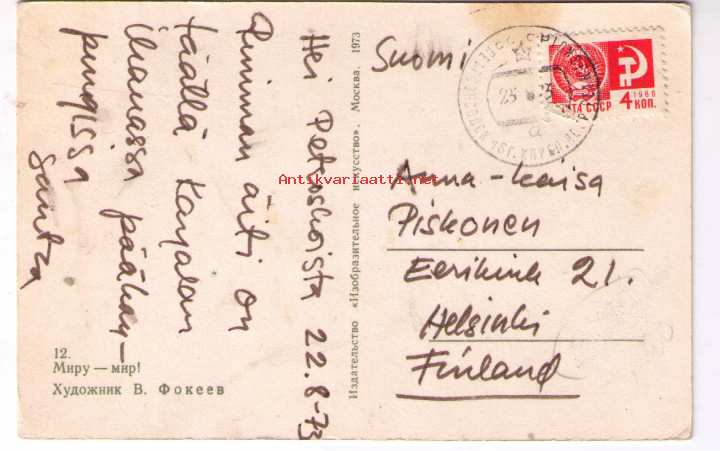 Hei Petroskoista 22.8-73
Rimman äiti on
täällä Karjalan
ihanassa pääkau-
pungissa
Suomi
Anna-Kaisa
Piskonen
Eerikink 21.
Helsinki
Finland
ПОЧТА СССР 4 КОП.
1966
25
Antikvariaatti.net
Издательство «Изобразительное искусство». Москва. 1973
12.
Миру — мир!
Художник В. Фокеев